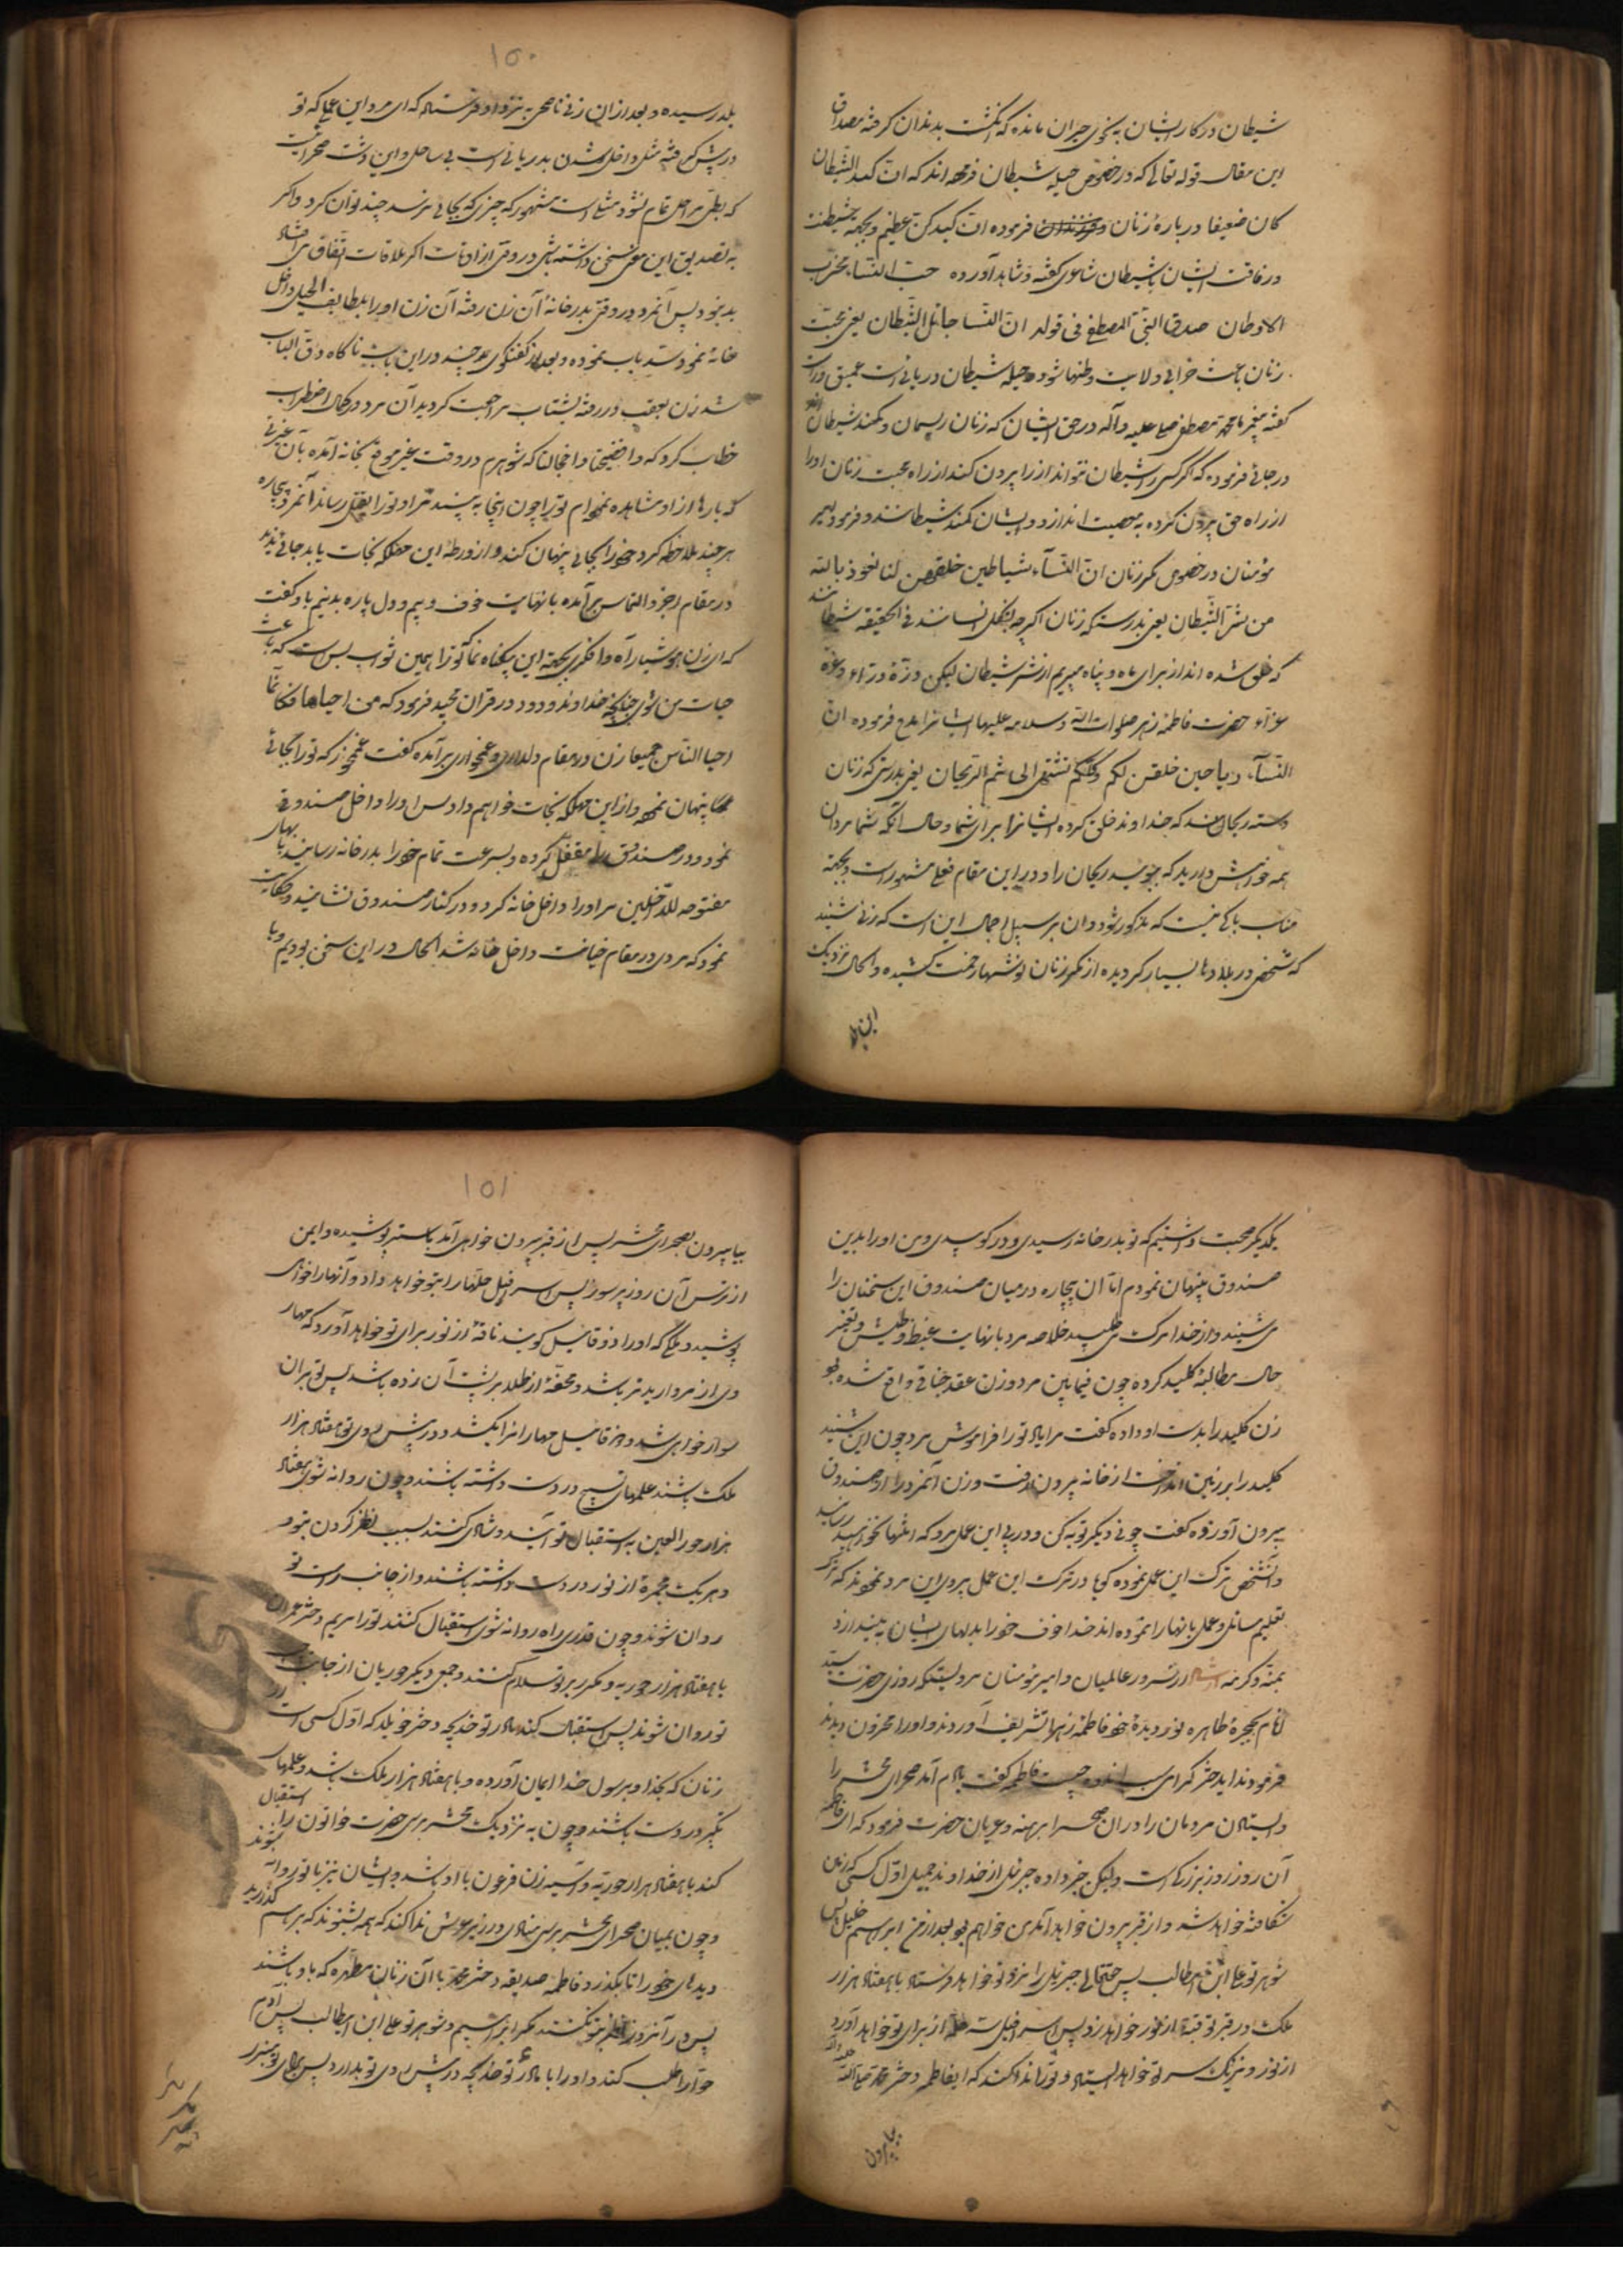 شیطان در کار ایشان بنحوی حیران مانده که انگشت بدندان گرفته مصداق
این مقال قوله تعالی که در خصوص حیله شیطان فرموده اند که ان کید الشیطان
کان ضعیفا و درباره زنان فرموده ان کیدکن عظیم و بجهة
و رفاقت ایشان با شیطان شاعری گفته و شاهد آورده حب النساء مخرب
الاوطان صدق النبی المصطفی فی قوله ان النسا حبائل الشیطان یعنی محبت
زنان باعث خرابی ولایت و طنها شود و حیله شیطان دریائی است عمیق و
گفته پیغمبر ما محمد مصطفی صلی علیه و آله در حق ایشان که زنان ریسمان و کمند شیطان
در جائی فرموده که اگر کسی را شیطان نتواند از راه بیرون کند از راه محبت زنان او را
از راه حق بیرون کرده به معصیت اندازد و ایشان کمند شیطانند و فرموده امیر
مؤمنان در خصوص مکر زنان ان النساء شیاطین خلقن لنا نعوذ بالله
من شر الشیطان یعنی بدرستیکه زنان اگرچه بشکل انسانند فی الحقیقه شیطانند
که خلق شده اند از برای ما و پناه میبریم از شر شیطان لیکن درة درّاء و غرة
غرّاء حضرت فاطمه زهرا صلوات الله و سلامه علیها ایشانرا مدح فرموده ان
النساء ریاحین خلقن لکم و کلکم تشتهی الی شم الریحان یعنی بدرستی که زنان
دسته ریحانند که خداوند خلق کرده ایشانرا برای شما و حال آنکه شما مردان
همه خواهش دارید که ببوئید ریحان را و در این مقام نقلی مشهور است و بجهة
مناسب باکی نیست که مذکور شود و آن بر سبیل اجمال این است که زنی شنید
که شخصی در بلاد ما بسیار گردیده از مکر زنان نوشتهها زحمت کشیده و الحال نزدیک
این بلد
۱۵۰
بلد رسیده و بعد از آن زنی ناصحی به نزد او فرستاد که ای مرد این عملی که تو
در پیش گرفته مثل داخل شدن بدریائی است بی ساحل و این دشت صحرائیست
که بطی مراحل تمام نشود مثلی است مشهور که چیزی که بجائی نرسد چند توان کرد و اگر
به تصدیق این معنی سخنی داشته باشی در وقتی از اوقات اگر ملاقات اتفاق می افتاد
بد نبود پس آنمرد در وقتی بدر خانه آن زن رفته آن زن او را بلطایف الحیل داخل
خانه نمود و سد باب نموده و بعد از گفتگوی چند در این باب ناگاه دق الباب
شد زن بعقب در رفته بشتاب مراجعت کردید آن مرد در کمال اضطراب
خطاب کرد که وا فضیحتا وا خجالتا که شوهرم در وقت غیر موقع بخانه آمده با آن غیرتی
که بارها از او مشاهده نموده ام تو را چون اینجا به بیند مرا و تو را بقتل رساند آنمرد بیچاره
هر چند ملاحظه کرد خود را بجائی پنهان کند و از ورطه این مهلکه نجات یابد جائی ندید
در مقام عجز و التماس برآمده با نهایت خوف و بیم و دل پاره بدو نیم باو گفت
که ای زن هوشیار آه وا فکری بجهة این بیگناه نما که ترا همین ثواب بس است که باعث
حیات من شوی چنانچه خداوند ودود در قرآن مجید فرمود که من احیاها فکانما
احیا الناس جمیعا زن در مقام دلداری و غمخواری برآمده گفت غم مخور که تو را بجائی
پنهان نموده و از این مهلکه نجات خواهم داد پس او را داخل صندوقی
نمود و در صندوق را مقفل کرده و بسرعت تمام خود را بدر خانه رسانید
مفتوحه للداخلین مرد او را داخل خانه کرد و در کنار صندوق نشانید و حکایت
نمود که مردی در مقام خیانت داخل خانه شد الحال در این سخن بودیم و با
یکدیگر صحبت داشتیم که تو بدر خانه رسیدی و در کوبیدی و من او را بدین
صندوق پنهان نمودم اما آن بیچاره در میان صندوق این سخنان را
می شنید و از خدا مرگ می طلبید خلاصه مرد با نهایت غیظ و طیش و تغییر
حال مطالبه کلید کرده چون فیمابین مرد و زن عقد جناقی واقع شده بود
زن کلید را بدست او داده گفت مرا یاد تو را فراموش مرد چون این شنید
کلید را بر زمین انداخت از خانه بیرون رفت و زن آنمرد را از صندوق
بیرون آورده گفت چونی دیگر توبه کن و در پی این عمل مرو که انتها نخواهد رسید
و آنشخص ترک این عمل نموده گویا در ترک این عمل پیروی این مرد نموده اند که
تعلیم مسائل و عمل بآنها را نموده اند خدا خوف خود را بدلهای ایشان بیندازد
بمنه و کرمه از سرور عالمیان و امیر مؤمنان مرویستکه روزی حضرت سید
انام بحجره طاهره نور دیده خود فاطمه زهرا تشریف آوردند و او را محزون دیدند
فرمودند ایدختر گرامی سبب اندوه چیست فاطمه گفت یادم آمد صحرای محشر را
و ایستادن مردمان را در آن صحرا برهنه و عریان حضرت فرمود که ای فاطمه
آن روز روز بزرگی است ولیکن خبر داده جبرئیل از خداوند جمیل اول کسی که زمین
شکافته خواهد شد و از قبر بیرون خواهد آمد من خواهم بود بعد از من ابراهیم خلیل پس
شوهر تو علی ابن ابیطالب پس حقتعالی جبرئیل را نزد تو خواهد فرستاد با هفتاد هزار
ملک و در قبر تو قبه از نور خواهد زد پس اسرافیل سه حله از برای تو خواهد آورد
از نور و نزدیک سر تو خواهد ایستاد و تو را ندا کند که ایفاطمه دختر محمد صلی الله علیه و آله
بیا بیرون
۱۵۱
بیا بیرون بصحرای محشر پس از قبر بیرون خواهی آمد با ستر پوشیده و ایمن
از ترس آن روز پر سوز پس اسرافیل حلهها را بتو خواهد داد و آنها را خواهی
پوشید و ملکی که او را ذوقائیل گویند ناقه از نور برای تو خواهد آورد که مهار
وی از مروارید تر باشد و محفه از طلا بر پشت آن زده باشد پس تو بر آن
سوار خواهی شد و ذوقائیل مهار آنرا بکشد و در پیش روی تو هفتاد هزار
ملک باشند علمهای تسبیح در دست داشته باشند و چون روانه شوی هفتاد
هزار حور العین به استقبال تو آیند و شادی کنند بسبب نظر کردن بتو و
و هر یک مجمره از نور در دست داشته باشند و از جانب راست تو
روان شوند و چون قدری راه روانه شوی استقبال کنند تو را مریم دختر عمران
با هفتاد هزار حوریه و مکرر بر تو سلام کنند و جمعی دیگر حوریان از جانب
تو روان شوند پس استقبال کند مادر تو خدیجه دختر خویلد که اول کسی است از
زنان که بخدا و برسول خدا ایمان آورده و با هفتاد هزار ملک باشد و علمهای
تکبیر در دست باشند و چون به نزدیک محشر برسی حضرت خواتون را استقبال
کند با هفتاد هزار حوریه و آسیه زن فرعون با او باشد و ایشان نیز با تو روانه شوند
و چون بمیان صحرای محشر برسی منادی در زیر عرش ندا کند که همه بشنوند که بر هم گذارید
دیدهای خود را تا بگذرد فاطمه صدیقه دختر محمد با آن زنان مطهره که با او باشند
پس در آنروز نظر بتو نکنند مگر ابراهیم و شوهر تو علی ابن ابیطالب پس آدم
حوا را طلب کند و او را با مادر تو خدیجه در پیش روی تو بدارد پس برای تو منبر